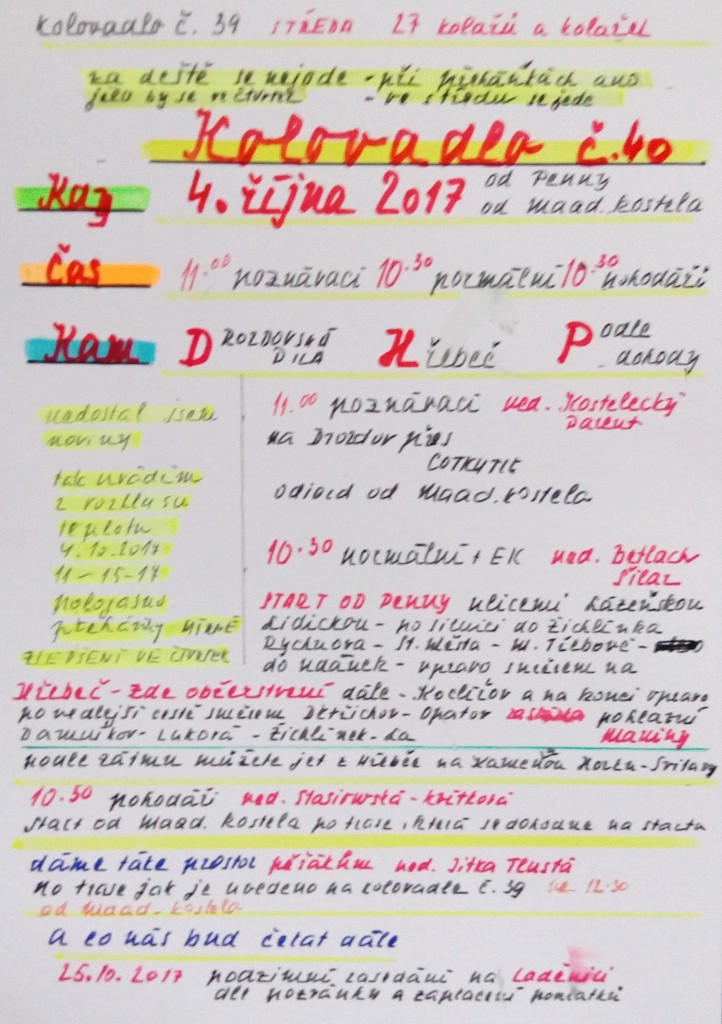 Kolovadlo č. 39 STŘEDA 27 kolařů a kolařek
za deště se nejede - při přeháňkách ano
jelo by se ve čtvrtek - ve středu se jede
Kolovadlo č. 40
Kdy 4. října 2017 od Penny
od Maad. kostela
Čas 11.00 poznávací 10.30 normální 10.30 pohodáři
Kam DROZDOVSKÁ PILA Hřebeč Podle dohody
nedostal jsem
noviny
tak uvádím
z rozhlasu
teplotu
4.10.2017
11-15-17
polojasno
přeháňky MÍRNÉ
ZLEPŠENÍ VE ČTVRTEK
11.00 poznávací ved. Kostelecký
na Drozdov přes
COTKYTLE
odjezd od Maad. kostela
10.30 normální + EK ved. Betlach
Šilar
START OD PENNY ulicemi Lázeňskou
Lidickou - po silnici do Žichlínka
Rychnova - St. Města - M. Třebové -
do Udánek - vpravo směrem na
Hřebeč - zde občerstvení dále - Koclířov a na konci vpravo
po vedlejší cestě směrem Dětřichov - Opatov pohlavní
Damníkov - Luková - Žichlínek - La Maviny
podle zájmu můžete jet z Hřebče na Kamennou Horku - Svitavy
10.30 pohodáři ved. Stasiowská - Krátková
Start od Maad. kostela po trase, která se dohodne na startu
dáme také prostor pěšákům ved. Jitka Tlustá
Po trase jak je uvedeno na kolovadle č. 39 ve 12.30
od Maad. kostela
A co nás bud čekat dále
25.10.2017 podzimní zasedání na Laděnici
dle pozvánky a zaplacení poplatků